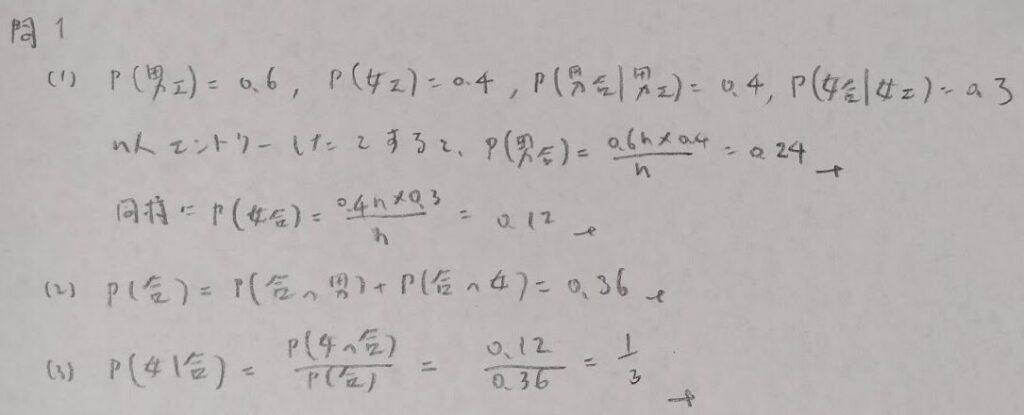 問1
(1) P(男エ) = 0.6, P(女エ) = 0.4, P(男合|男エ) = 0.4, P(女合|女エ) = 0.3
n人エントリーしたとすると、P(男合) = 0.6n×0.4/n = 0.24
同様に P(女合) = 0.4n×0.3/n = 0.12
(2) P(合) = P(合∩男) + P(合∩女) = 0.36
(3) P(女|合) = P(女∩合)/P(合) = 0.12/0.36 = 1/3